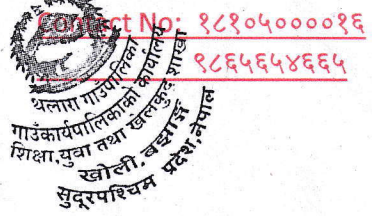 Contact No: १८१०५००००१६
९८६५६५४६६५
थलारा गाउँपालिका
गाउँकार्यपालिकाको कार्यालय
शिक्षा, युवा तथा खेलकुद शाखा
खोली, बझाङ
सुदूरपश्चिम प्रदेश, नेपाल